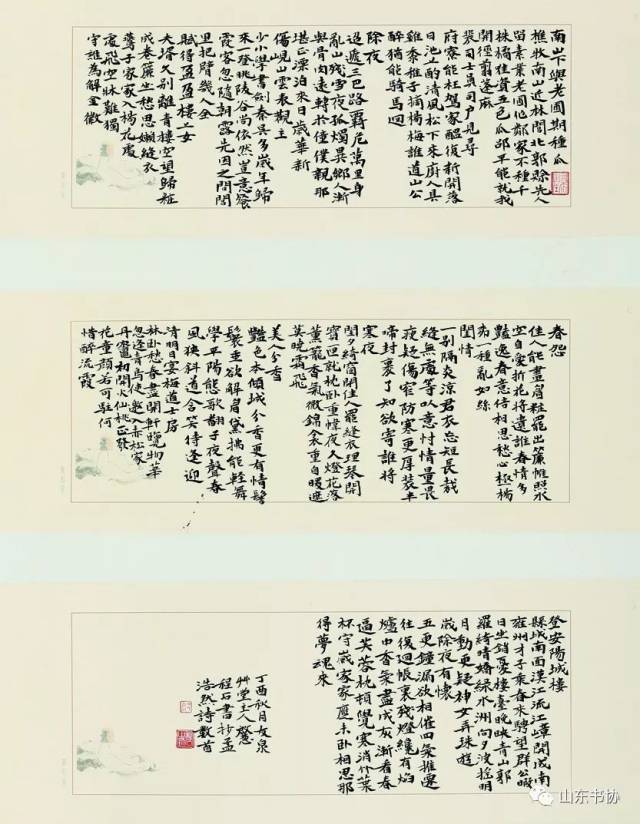 南山下與老圃期種瓜
樵牧南山近林閭北郭賒先人
留素業老圃作鄰家不種千
株橘惟資五色瓜邵平能就我
開徑剪蓬麻
裴司士員司户見尋
府寮能枉駕家醖復新開落
日池上酌清風松下來廚人具
雞黍稚子摘楊梅誰道山公
醉猶能騎馬迴
除夜
迢遞三巴路羈危萬里身
亂山殘雪夜孤燭異鄉人漸
與骨肉遠轉於僮僕親那
堪正漂泊來日歲華新
傷峴山雲表觀主
少小學書劍秦吳多歲年歸
來一登眺陵谷尚依然豈意餐
霞客忽隨朝露先因之問閭
里把臂幾人全
賦得盈盈樓上女
夫壻久別離青樓空望歸粧
成卷簾坐愁思嬾縫衣
燕子家家入楊花處
處飛空牀難獨
守誰為解金徽
春怨
佳人能畫眉粧罷出簾帷照水
空自愛折花將遺誰春情多
艷逸春意倍相思愁心極楊
柳一種亂如絲
閨情
一別隔炎涼君衣忘短長裁
縫無處等以意忖情量畏
瘦疑傷窄防寒更厚裝半
啼封裹了知欲寄誰將
寒夜
閨夕綺窗閉佳人罷縫衣理琴開
寶匣就枕臥重幃夜久燈花落
薰籠香氣微錦衾重自暖遮
莫曉霜飛
美人分香
艷色本傾城分香更有情髻
鬟垂欲解眉黛拂能輕舞
學平陽態歌翻子夜聲春
風狹斜道含笑待逢迎
清明日宴梅道士房
林臥愁春盡開軒覽物華
忽逢青鳥使邀入赤松家
丹竈初開火仙桃正發
花童顏若可駐何
惜醉流霞
登安陽城樓
縣城南面漢江流江嶂開成南
雍州才子乘春來騁望群公暇
日坐銷憂樓臺晚映青山郭
羅綺晴嬌綠水洲向夕波搖明
月動更疑神女弄珠遊
歲除夜有懷
五更鐘漏欲相催四氣推遷
往復迴帳裏殘燈纔有焰
爐中香氣盡成灰漸看春
逼芙蓉枕頓覺寒消竹葉
杯守歲家家應未臥相思那
得夢魂來
丁酉秋月友泉
艸堂主人
程石書抄孟
浩然詩數首
山东书协